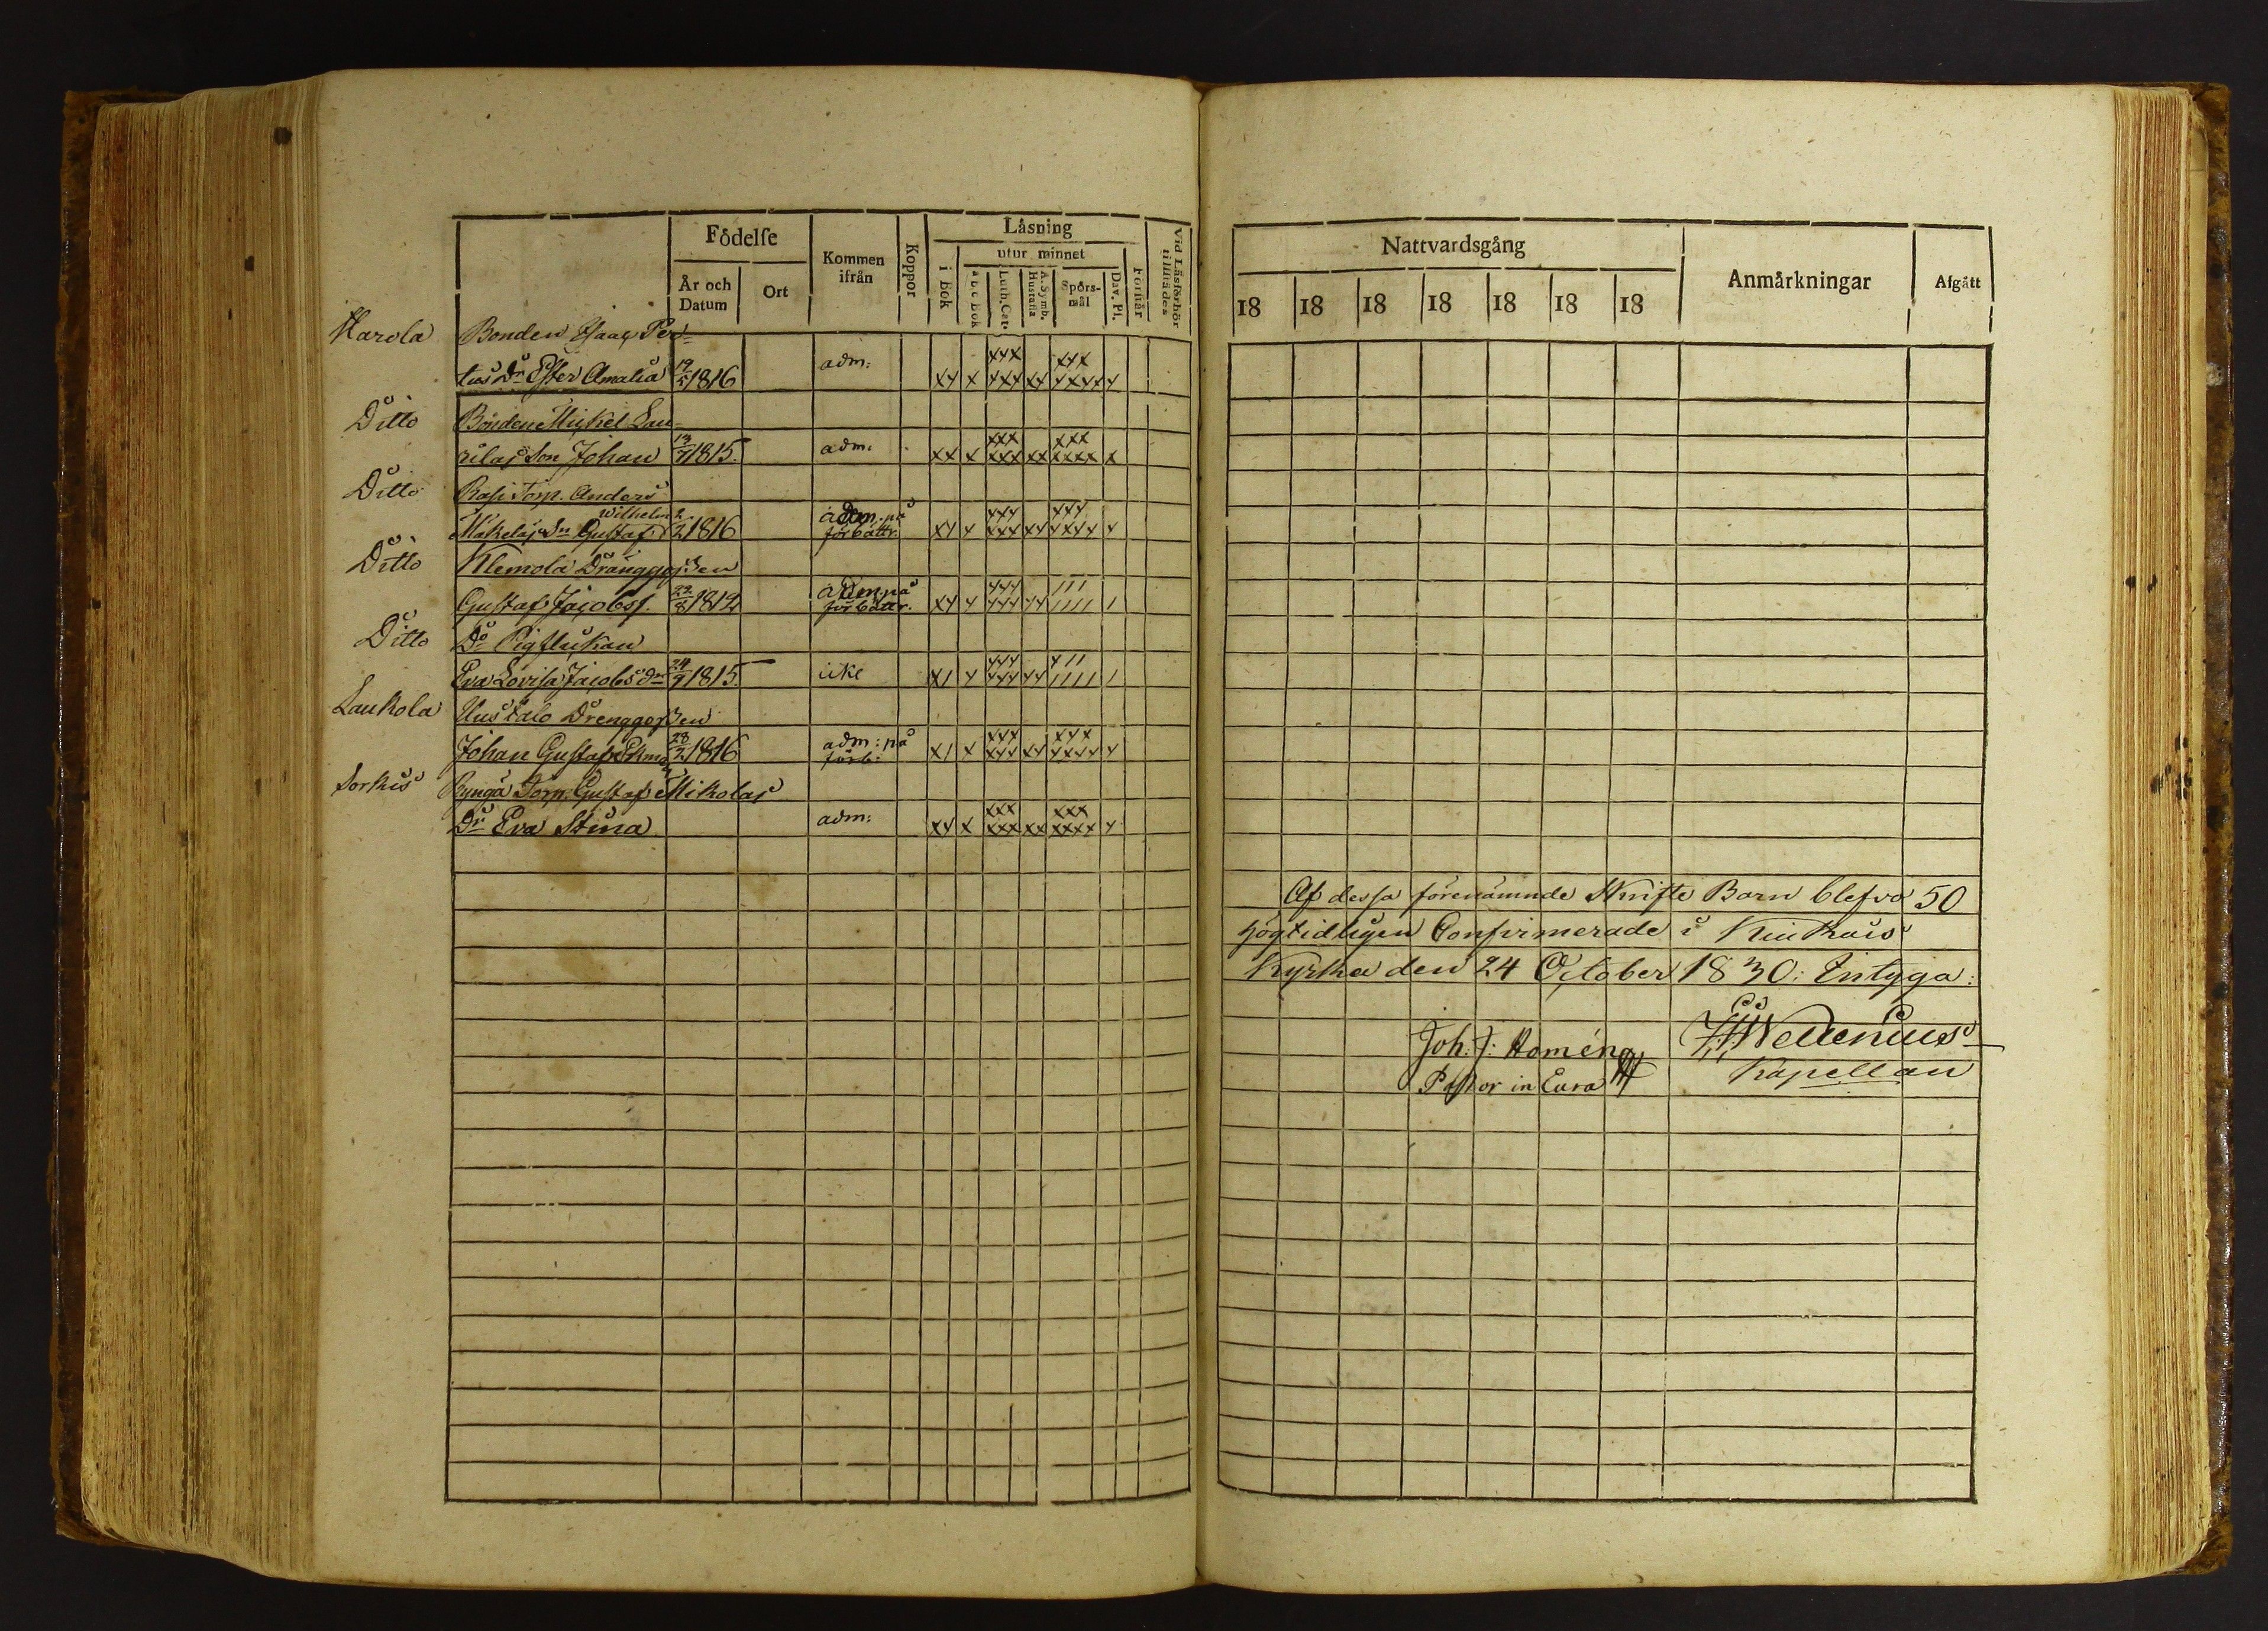 Födelse
År och Datum
Ort
Kommen ifrån
Koppor
Läsning
utur minnet
i Bok
a b c Bok
Luth. Cat.
A. Symb. Hustafla
Spörs-mål
Dav. Ps.
Förstår
Vid Läsförhör tillstädes
Harola Bonden Isaac Per-
tus Dr Ester Amalia 19/5 1816 adm:
xx x xxx xxx xx xxx xxxx x
Ditto Bonden Mickel Lau-
rilas Son Johan 13/7 1815. adm:
xx x xxx xxx xx xxx xxxx x
Ditto Rasi Torp. Anders
Mäkeläs Sn Gustaf Wilhelm 2/2 1816 adm. på förbättr.
xx x xxx xxx xx xxx xxxx x
Ditto Klemola Dränggossen
Gustaf Jacobss. 22/8 1814 adm. på förbättr.
xx x xxx xxx xx 111 1111 1
Ditto Do Pigflickan
Eva Lovisa Jacobsdr 24/9 1815. icke
x1 x xxx xxx xx x11 1111 1
Laukola Uusitalo Drenggossen
Johan Gustaf Ekman 28/2 1816 adm: på förb:
x1 x xxx xxx xx xxx xxxx x
Sorkis Torp. Gustaf Mikolas
Dr Eva Stina adm:
xx x xxx xxx xx xxx xxxx x
Nattvardsgång
18 18 18 18 18 18 18
Anmärkningar
Afgått
Af dessa förenämnde Skrifte Barn blefvo 50
högtidligen Confirmerade i Kiukais
Kyrka den 24 October 1830: Intyga:
Joh. J: Homén
Pastor in Eura
Wellenius
Kapellan